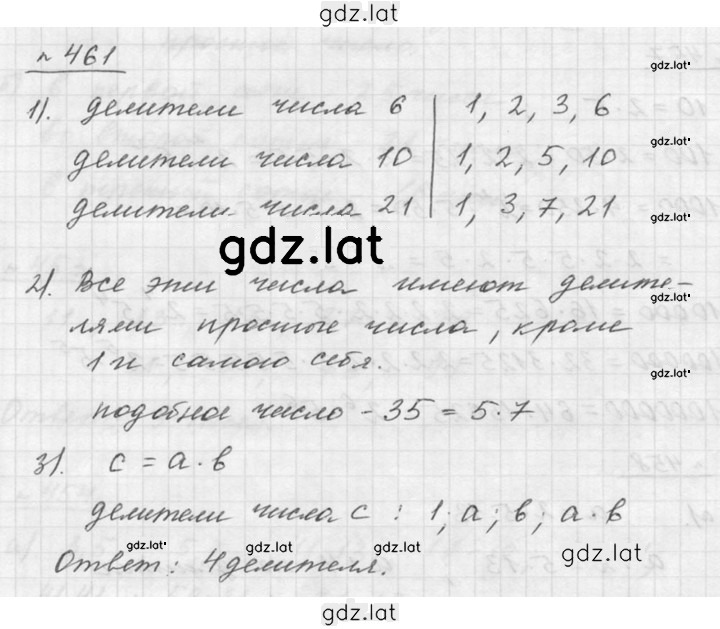 gdz.lat
№ 461
gdz.lat
1). делители числа 6 | 1, 2, 3, 6
gdz.lat
делители числа 10 | 1, 2, 5, 10
делители числа 21 | 1, 3, 7, 21
gdz.lat
gdz.lat
2). Все эти числа имеют делите-
gdz.lat
лями простые числа, кроме
1 и самого себя.
gdz.lat
подобное число - 35 = 5·7
3). c = a·b
делители числа c : 1; a; b; a·b
gdz.lat gdz.lat gdz.lat gdz.lat
Ответ: 4 делителя.
gdz.lat